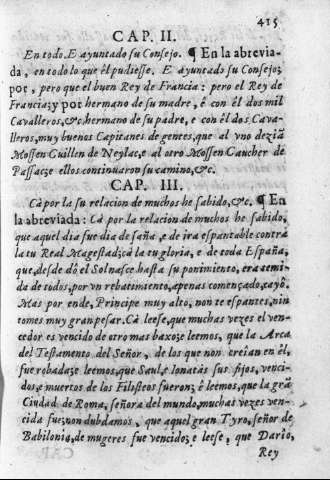 415
CAP. II.
En todo. E ayuntado su Consejo. ¶ En la abrevia-
da, en todo lo que èl pudiesse. E ayuntads su Consejo;
por, pero que el buen Rey de Francia: pero el Rey de
Francia; y por hermano de su madre, é con èl dos mil
Cavalleros, &c. hermano de su padre, e con èl dos Cava-
lleros, muy buenos Capitanes de gentes, que al vno dezia
Mossen Guillen de Neylac, e al otro Mossen Gaucher de
Passac; e ellos continuaron su camino, &c.
CAP. III.
Cà por la su relacion de muchos he sabido, &c. ¶ En
la abreviada: Cà por la relacion de muchos he sabido,
que aquel dia fue dia de saña, e de ira espantable contra
la tu Real Magestad; cà la tu gloria, e de toda España,
que, desde dò el Sol nasce hasta su ponimiento, era temi-
da de todos, por vn rebatimiento, apenas començado, cayò.
Mas por ende, Principe muy alto, non te espantes, nin
tomes muy gran pesar. Cà leese, que muchas vezes el ven-
cedor es vencido de otro mas baxo: e leemos, que la Arca
del Testamento del Señor, de los que non creian en èl,
fue robada: e leemos, que Saul, e Ionatàs sus fijos, venci-
dos, e muertos de los Filisteos fueron; é leemos, que la grã
Ciudad de Roma, señora del mundo, muchas vezes ven-
cida fue: non dubdamos, que aquel gran Tyro, señor de
Babilonia, de mugeres fue vencido; e leese, que Dario,
Rey